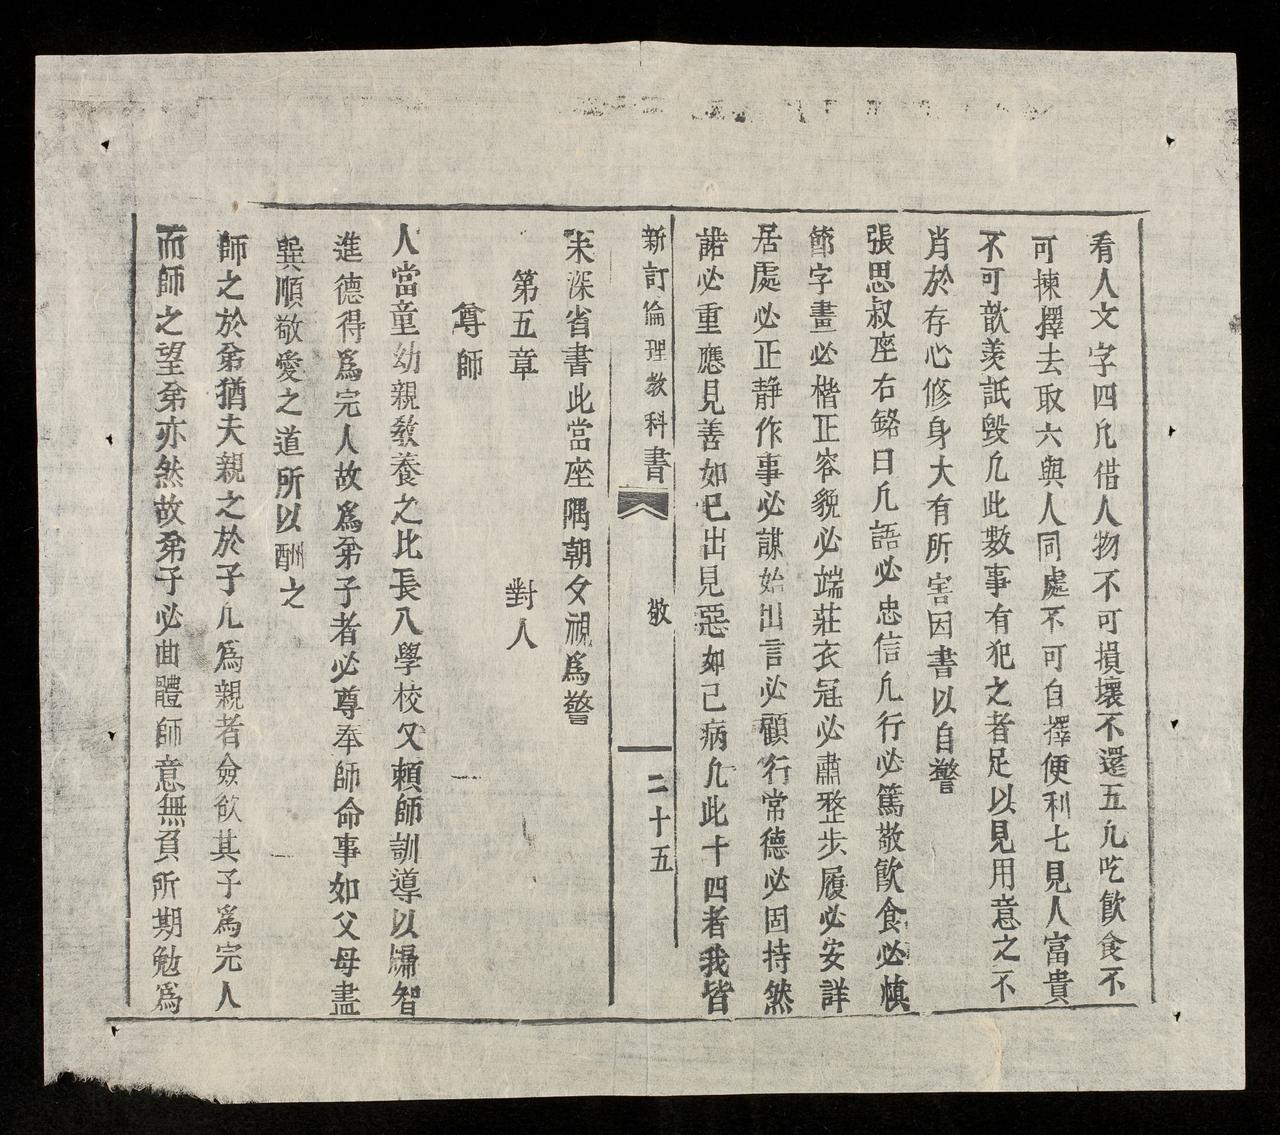 看人文字四凢借人物不可損壞不還五凢吃飮食不
可揀擇去取六與人同處不可自擇便利七見人富貴
不可歆羡詆毀凢此數事有犯之者足以見用意之不
肖於存心修身大有所害因書以自警
張思叔座右銘曰凢語必忠信凢行必篤敬飮食必愼
節字畫必楷正容貌必端莊衣冠必肅整步履必安詳
居處必正静作事必謀始出言必顧行常德必固持然
諾必重應見善如己出見惡如己病凢此十四者我皆
新訂倫理敎科書 敬 二十五
未深省書此當座隅朝夕視爲警
第五章 對人
尊師
人當童幼親敎養之比長入學校又賴師訓導以牖智
進德得爲完人故爲弟子者必尊奉師命事如父母盡
巽順敬愛之道所以酬之
師之於弟猶夫親之於子凢爲親者僉欲其子爲完人
而師之望弟亦然故弟子必曲體師意無負所期勉爲